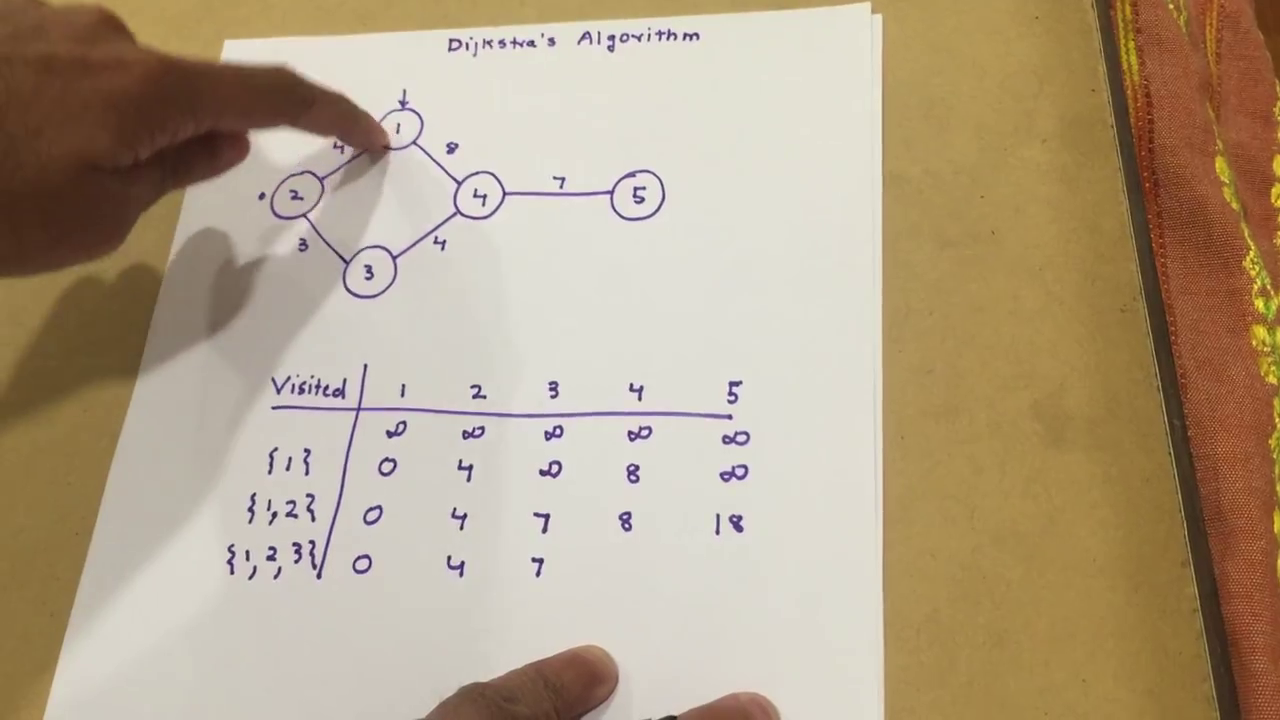 Dijkstra's Algorithm
1
4 8
2 4 7 5
3 4
3
Visited 1 2 3 4 5
∞ ∞ ∞ ∞ ∞
{1} 0 4 ∞ 8 ∞
{1,2} 0 4 7 8 18
{1,2,3} 0 4 7